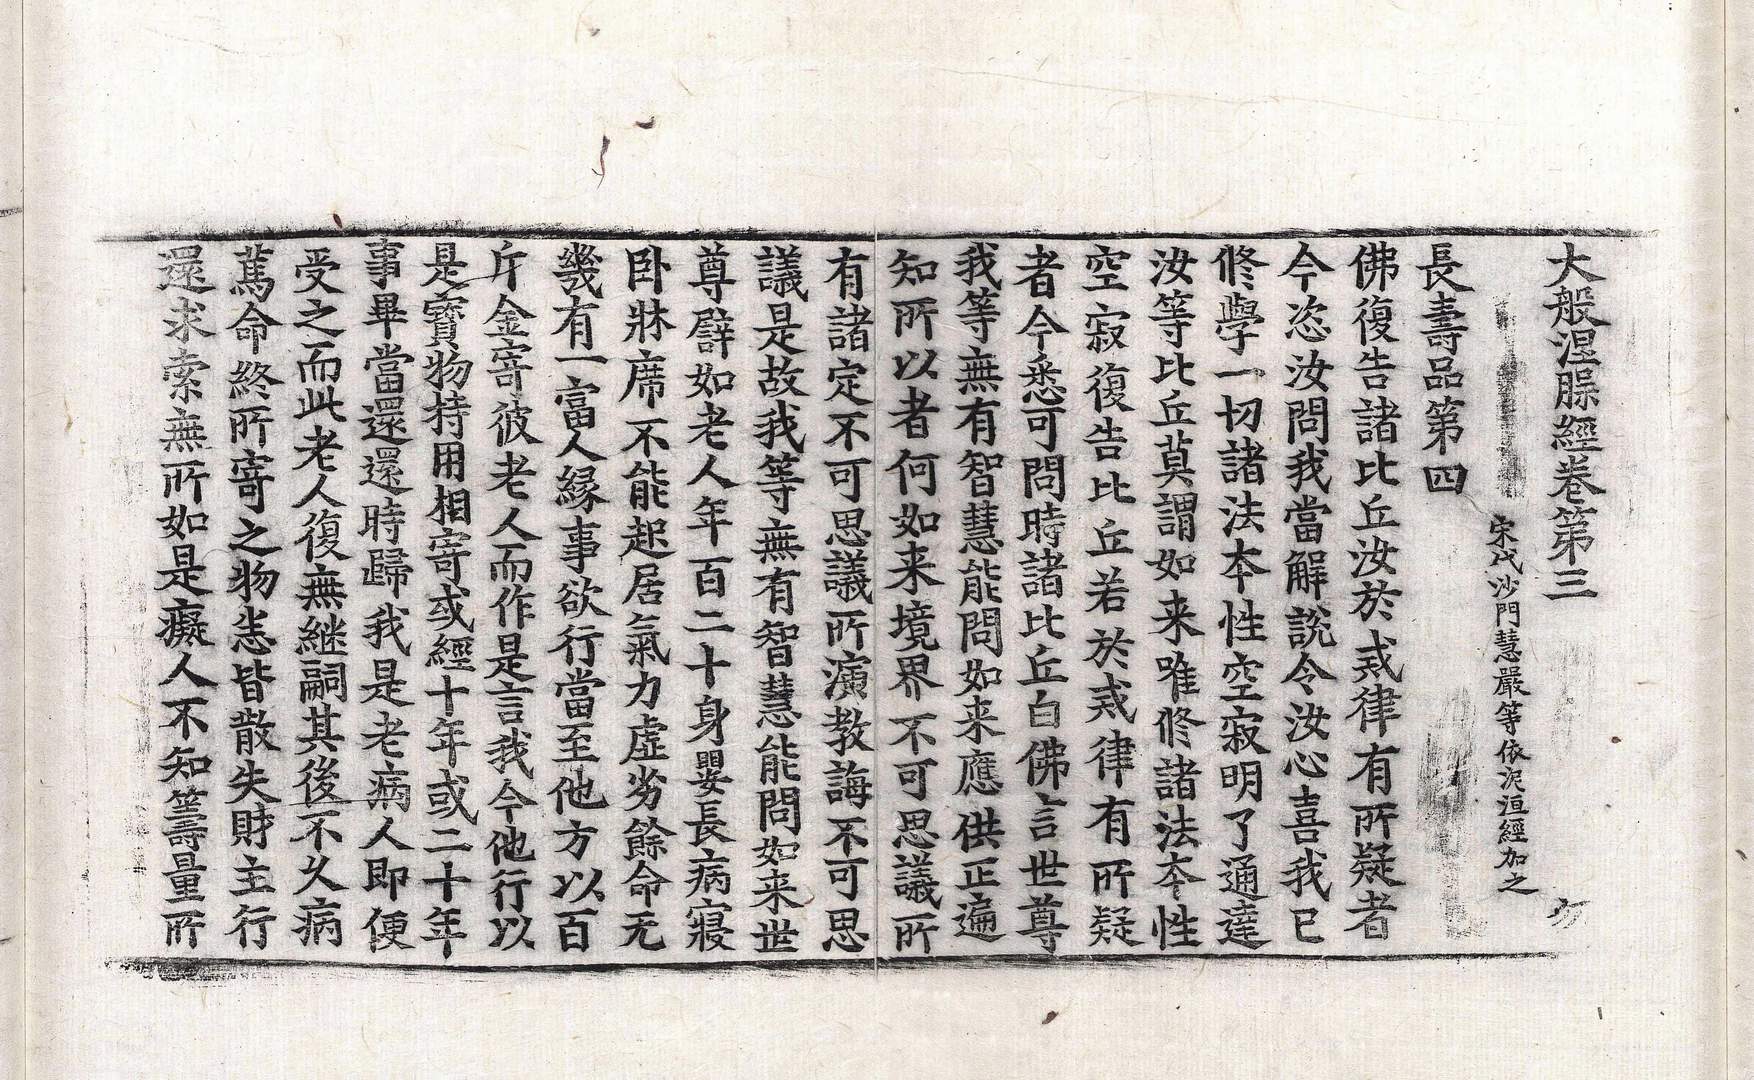 大般涅槃經卷第三
宋代沙門慧嚴等依泥洹經加之
長壽品第四
佛復告諸比丘汝於戒律有所疑者
今恣汝問我當解說令汝心喜我已
修學一切諸法本性空寂明了通達
汝等比丘莫謂如来唯修諸法本性
空寂復告比丘若於戒律有所疑
者今悉可問時諸比丘白佛言世尊
我等無有智慧能問如来應供正遍
知所以者何如来境界不可思議所
有諸定不可思議所演教誨不可思
議是故我等無有智慧能問如来世
尊譬如老人年百二十身嬰長病寢
卧牀席不能起居氣力虛劣餘命无
幾有一富人緣事欲行當至他方以百
斤金寄彼老人而作是言我今他行以
是寶物持用相寄或經十年或二十年
事畢當還還時歸我是老病人即便
受之而此老人復無継嗣其後不久病
萬命終所寄之物悉皆散失財主行
還求索無所如是癡人不知筭量所